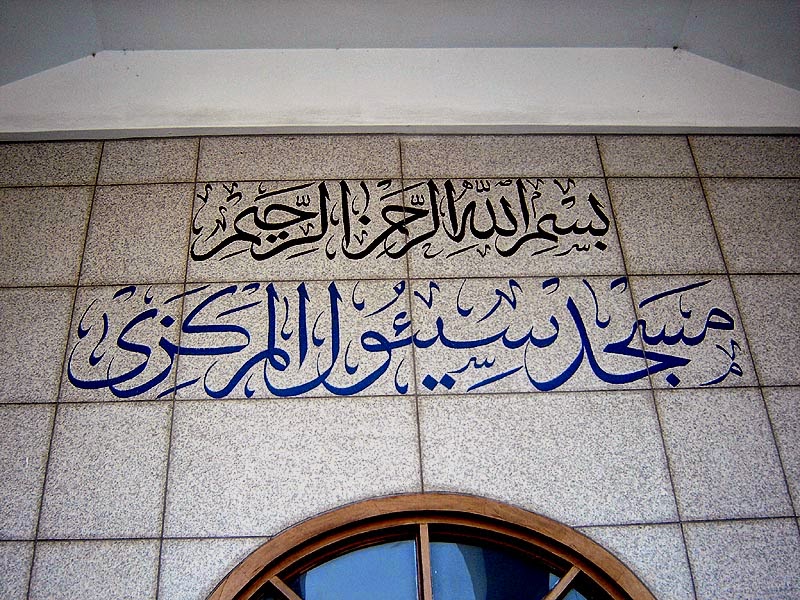 بسم الله الرحمن الرحيم
مسجد سيئول المركزي